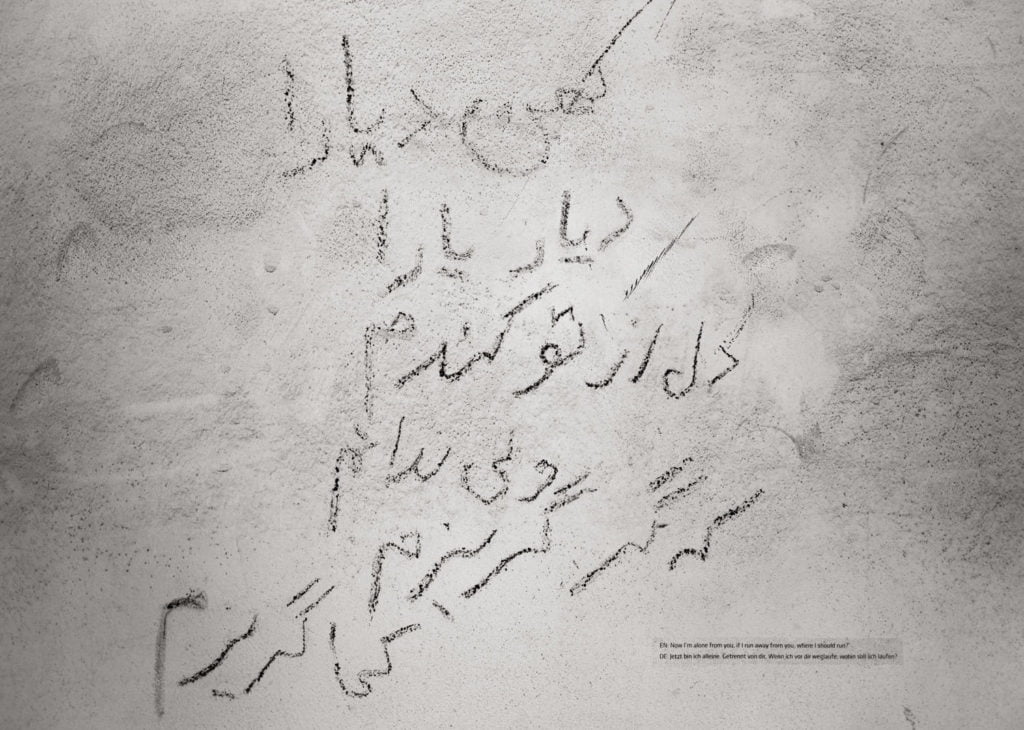 کهن دیارا
دیار یارا
دل از تو کندم
ولی ندانم
که گر گریزم
کجا گریزم
EN: Now I'm alone from you, if I run away from you, where I should run?
DE: Jetzt bin ich alleine. Getrennt von dir. Wenn ich vor dir weglaufe, wohin soll ich laufen?